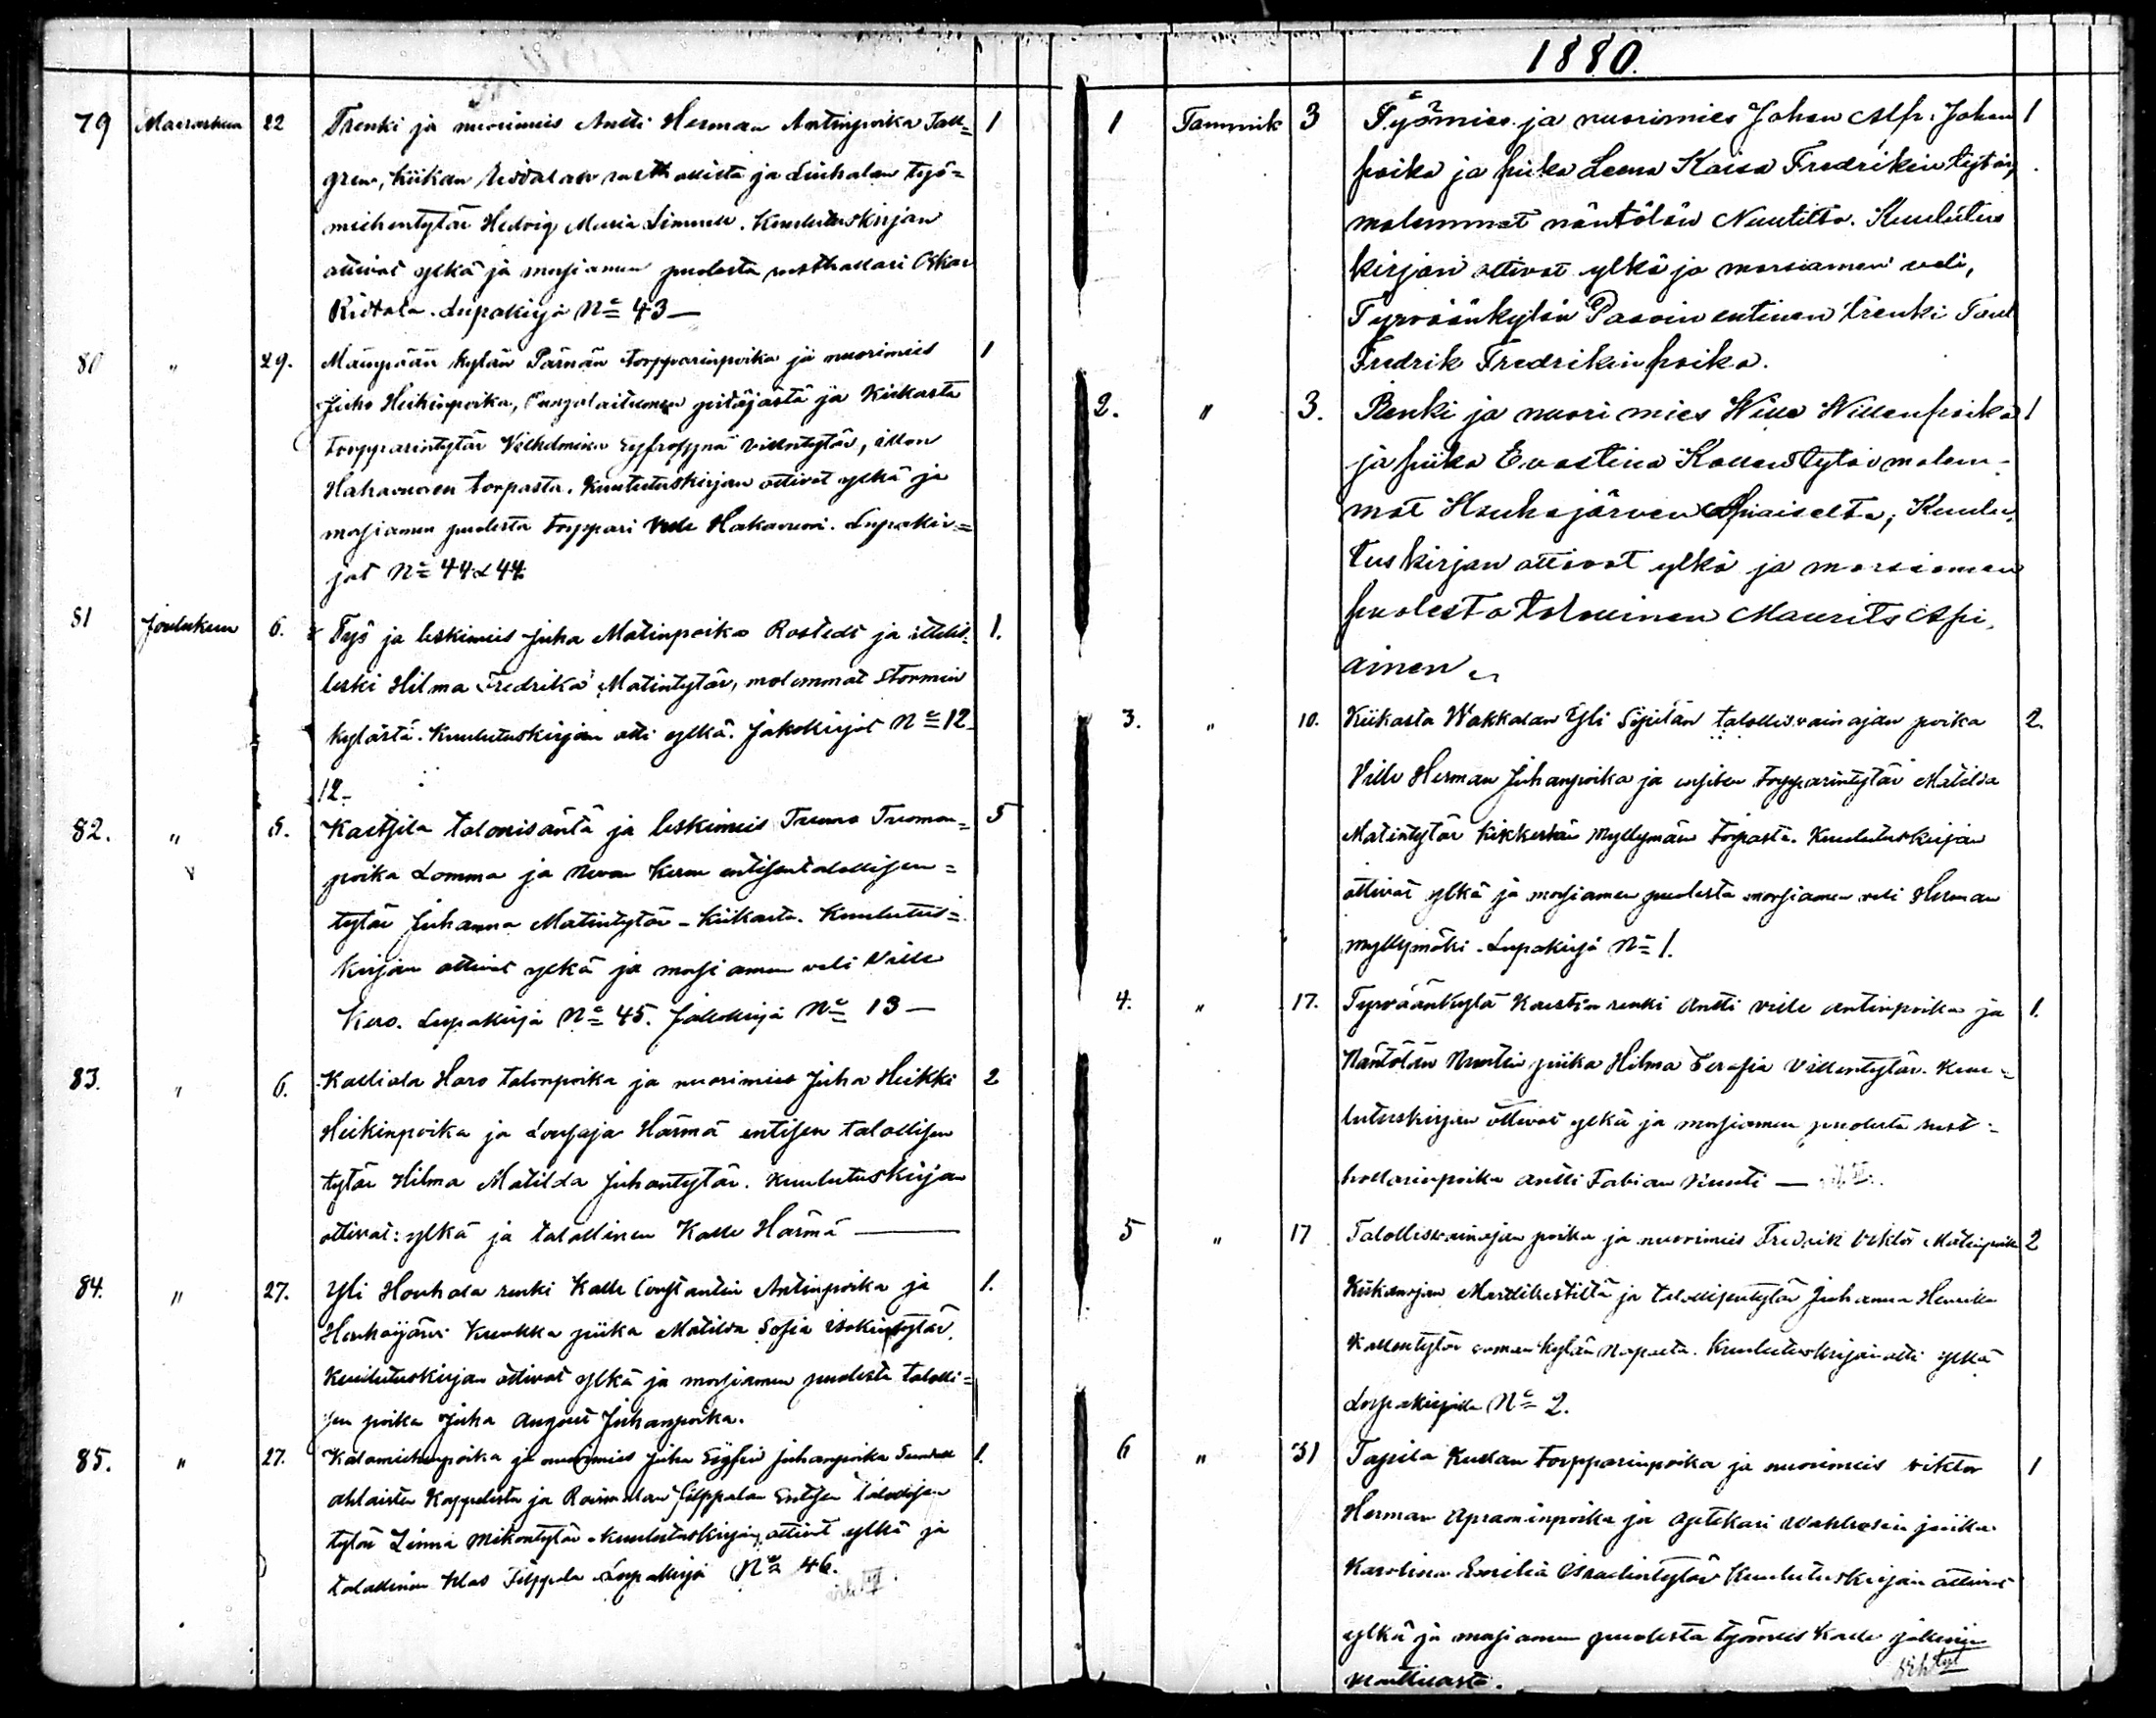 79 Marraskuu 22 Trenki ja nuorimies Antti Herman Antinpoika Tall= 1
gren, Kiikan rusthollista ja Liuhalan työ=
miehentytär Hedvig Maria. Kuulutuskirjan
ottivat ylkä ja morsiamen puolesta rusthollari Oskar
Ridtala. Lupakirja No 43 —
80 " 29. Mäenpään kylän Pärnän torpparinpoika ja nuorimies 1
Juho Heikinpoika, Pungalaitumen pitäjästä ja Kiikasta
torpparintytär Vilhelmina Villentytär, Illon
Hakavuoren torpasta. Kuulutuskirjan ottivat ylkä ja
morsiamen puolesta torppari Ville Hakavuori. Lupakir=
jat No 44 & 44.
81 Joulukuu 6. Työ ja leskimies Juha Matinpoika Rostedt ja itellis= 1.
leski Hilma Fredrika Matintytär, molemmat Stormin
kylästä. Kuulutuskirjan otti ylkä. Jakokirjat No 12
12.
82. " 5. Kaltsila talonisäntä ja leskimies Tuomo Tuomon= 5
poika Lomma ja Keron entisentalollisen=
tytär Juhanna Matintytär – Kiikasta. Kuulutus=
kirjan ottivat ylkä ja morsiamen veli Ville
Kero. Lupakirja No 45. Jakokirja No 13 —
83. " 6. Kalliala Haro talonpoika ja nuorimies Juha Heikki 2
Heikinpoika ja Lousaja Härmä entisen talollisen
tytär Hilma Matilda Juhantytär. Kuulutuskirjan
ottivat: ylkä ja talollinen Kalle Härmä —
84. " 27. Yli Houhala renki Kalle Constantin Antinpoika ja 1.
Houhajärvi piika Matilda Sofia Isakintytär.
Kuulutuskirjan ottivat ylkä ja morsiamen puolesta talolli=
sen poika Juha August Juhanpoika.
85. " 27. Kalamiehenpoika ja nuorimies Juha Sigfrid Juhanpoika 1.
Ahlaisten Kappelista ja Roismalan Filppalan Entisen talollisen
tytär Linna Mikontytär. Kuulutuskirjan ottivat ylkä ja
talollinen Klas Filppala. Lupakirja No 46.
1880.
1 Tammik 3 Työmies ja nuorimies Johan Alfr. Johan 1
poika ja piika Leena Kaisa Fredrikin tytär,
molemmat näntölän Nuutilta. Kuulutus
kirjan ottivat ylkä ja morsiamen veli,
Tyrväänkylän Paavin entinen trenki Taul
Fredrik Fredrikinpoika.
2. " 3. Renki ja nuori mies Wille Willenpoika 1
ja piika Evastina Kallentytär molem-
mat Houhajärven Apiaiselta; Kuulu,
tuskirjan ottivat ylkä ja morsiamen
puolesta talollinen Maurits Api,
ainen
3. " 10. Kiikasta Wakkalan Yli Sipilän talollisvainajan poika 2.
Ville Herman Juhanpoika ja torpparintytär Matilda
Matintytär Myllymäen torpasta. Kuulutuskirjan
ottivat ylkä ja morsiamen puolesta morsiamen veli Herman
Myllymäki. Lupakirja No 1.
4. " 17. Tyrväänkylä Kaustin renki Antti Ville Antinpoika ja 1.
Näntölän Nuutin piika Hilma Serafia Villentytär. Kuu=
lutuskirjan ottivat ylkä ja morsiamen puolesta rust=
hollarinpoika Antti Fabian Nuuti —
5 " 17 Talollisvainajan poika ja nuorimies Fredrik Viktor Matinpoika 2
Kiikanojan ja talollisentytär Juhanna Henrika
Kallentytär saman kylän. Kuulutuskirjan otti ylkä
Lupakirjalla No 2.
6 " 31 Tapila Kullan torpparinpoika ja nuorimies Viktor 1
Herman Apraminpoika ja Aptekari piika
Karolina Emilia Israelintytär Kuulutuskirjan ottivat
ylkä ja morsiamen puolesta työmies Kalle